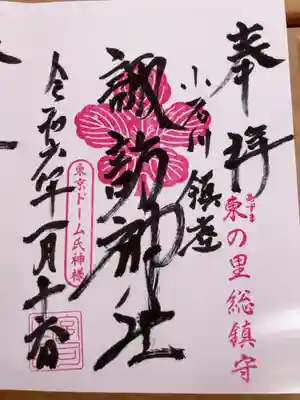 奉拝
あずま
東の里総鎮守
小石川鎮座
諏訪神社
東京ドーム氏神様
令和六年一月十六日